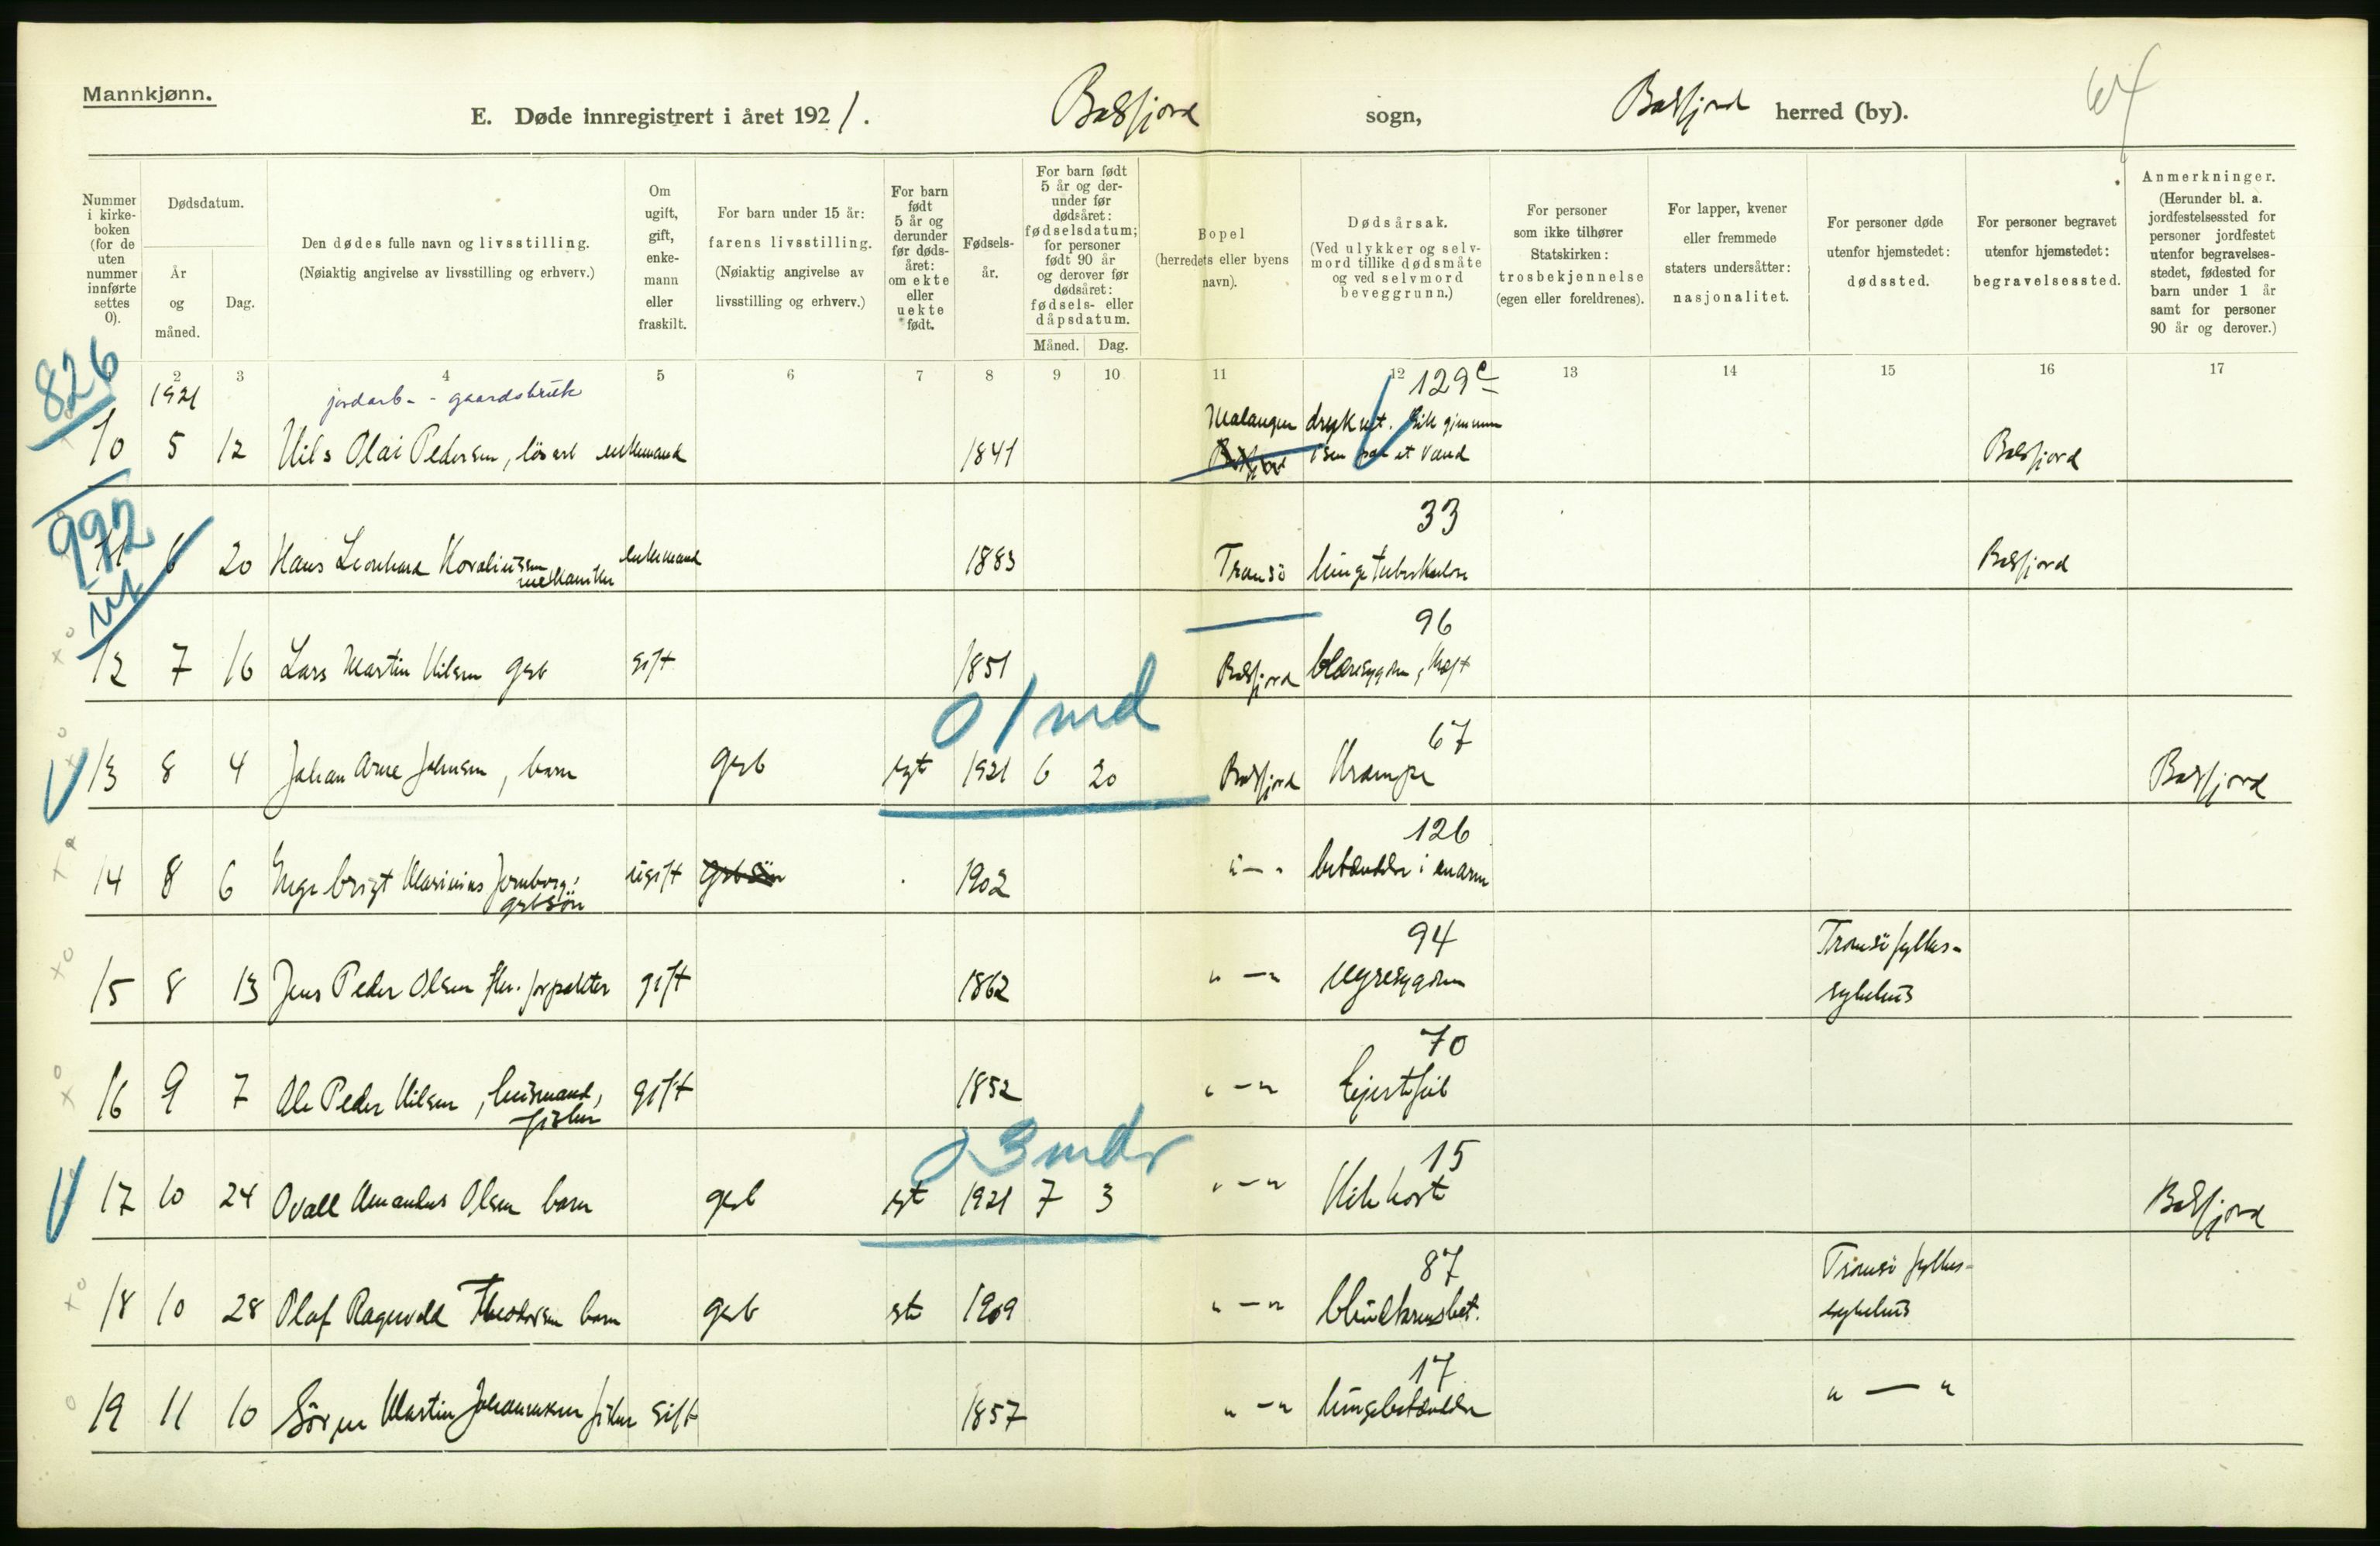 Mannkjønn.
E. Døde innregistrert i året 1921. Balsfjord sogn, Balsfjord herred (by). 64
Nummer i kirke-boken (for de uten nummer innførte settes 0).
Dødsdatum.
År og måned.
Dag.
Den dødes fulle navn og livsstilling.
(Nøiaktig angivelse av livsstilling og erhverv.)
Om ugift, gift, enke-mann eller fraskilt.
For barn under 15 år: farens livsstilling.
(Nøiaktig angivelse av livsstilling og erhverv.)
For barn født 5 år og derunder før døds-året: om ekte eller uekte født.
Fødsels-år.
For barn født 5 år og der-under før dødsåret: fødselsdatum; for personer født 90 år og derover før dødsåret: fødsels- eller dåpsdatum.
Måned. Dag.
Bopel (herredets eller byens navn).
Dødsårsak.
(Ved ulykker og selv-mord tillike dødsmåte og ved selvmord beveggrunn.)
For personer som ikke tilhører Statskirken: trosbekjennelse (egen eller foreldrenes).
For lapper, kvener eller fremmede staters undersåtter: nasjonalitet.
For personer døde utenfor hjemstedet: dødssted.
For personer begravet utenfor hjemstedet: begravelsessted.
Anmerkninger.
(Herunder bl. a. jordfestelsessted for personer jordfestet utenfor begravelses-stedet, fødested for barn under 1 år samt for personer 90 år og derover.)
2 3 4 5 6 7 8 9 10 11 12 13 14 15 16 17
826 1921 jordarb. - gaardsbruk 129c
10 5 12 Nils Olai Pedersen, løsarb enkemand 1841 Malangen Balsfjord druknet. Gik gjennem isen paa et vand Balsfjord
992 33
11 6 20 Hans Leonhard Koralinssen mekaniker enkemand 1883 Tromsö lungetuberkulose Balsfjord
96
12 7 16 Lars Martin Nilsen gsb gift 1851 Balsfjord blæresygdom, kræft
0 1 md 67
13 8 4 Johan Arne Johnsen, barn gsb egt 1921 6 20 Balsfjord Krampe Balsfjord
126
14 8 6 Ingebrigt Marinius Jernberg: gsbsön ugift gsbsön 1902 " - " betændelse i en arm
94
15 8 13 Jens Peder Olsen fhv. forpakter gift 1862 " - " nyresygdom Tromsö fylkes-sykehus
70
16 9 7 Ole Peder Nilsen, husmand, fisker gift 1852 " - " hjertefeil
0 3 mdr 15
17 10 24 Ovall Amandus Olsen barn gsb egt 1921 7 3 " - " Kikhoste Balsfjord
87
18 10 28 Olaf Ragnvald Theodorsen barn gsb 1909 " - " Tromsö fylkes-sykehus
17
19 11 10 Sören Martin Johannesen fisker gift 1857 " - " lungebetændelse " - "